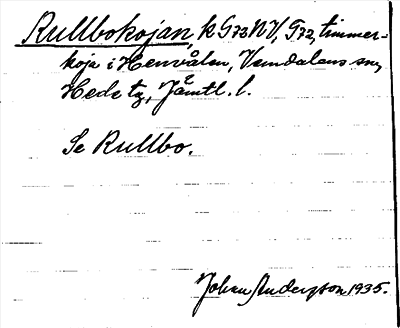 Rullbokojan, k G73NV, G72, timmer-
koja i Henvålen, Vemdalens sn,
Hede tg, Jämtl. l.
Se Rullbo.
Johan Anderzson 1935.